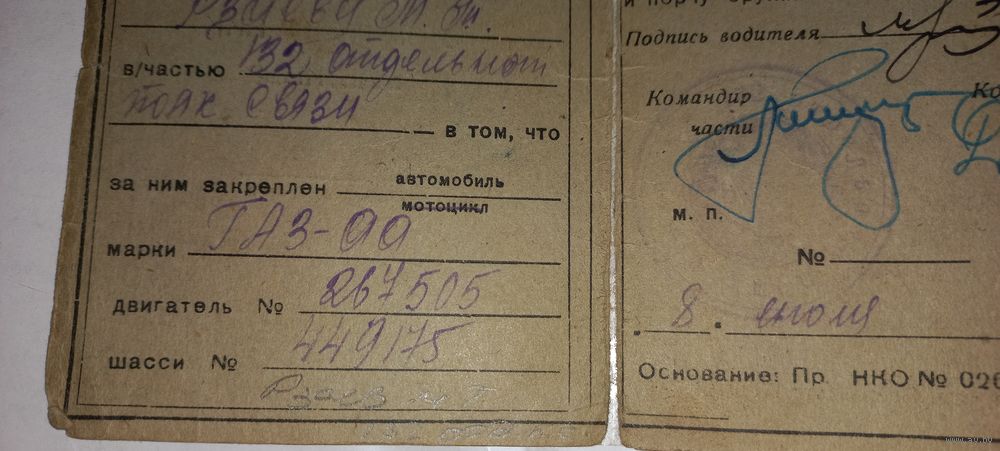 Рзаева М. Т.
в/частью 132 отдельный
полк связи
— в том, что
за ним закреплен автомобиль
мотоцикл
марки ГАЗ-АА
двигатель № 267505
шасси № 449175
Рзаев М Т
Подпись водителя
Командир
части
м. п.
№
8. июля
Основание: Пр. НКО № 026